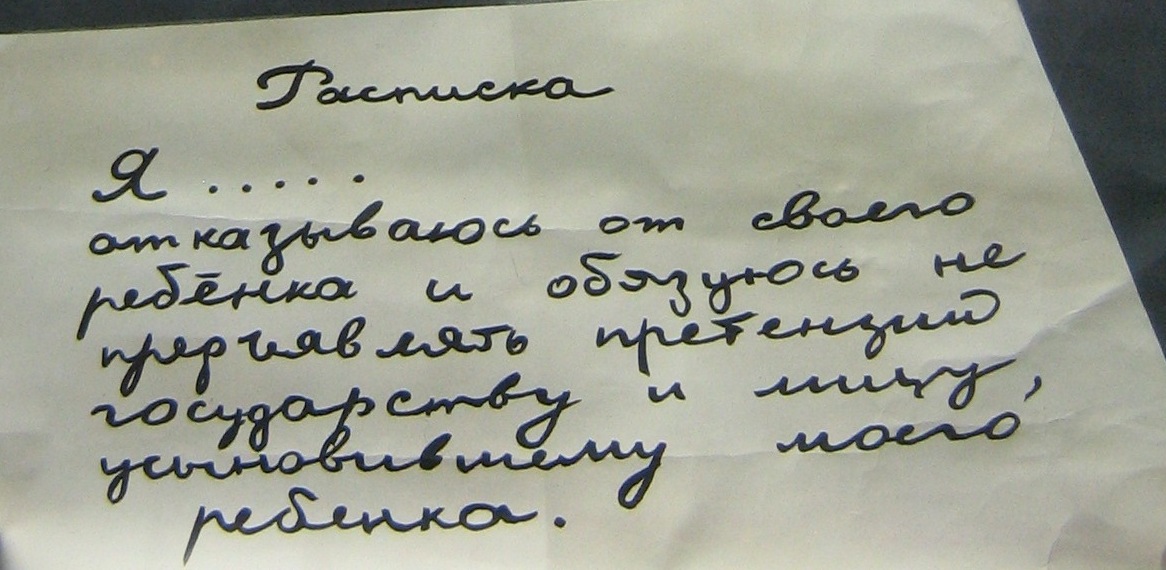 Расписка
Я . . . . .
отказываюсь от своего
ребёнка и обязуюсь не
предъявлять претензий
государству и лицу,
усыновившему моего
ребенка.